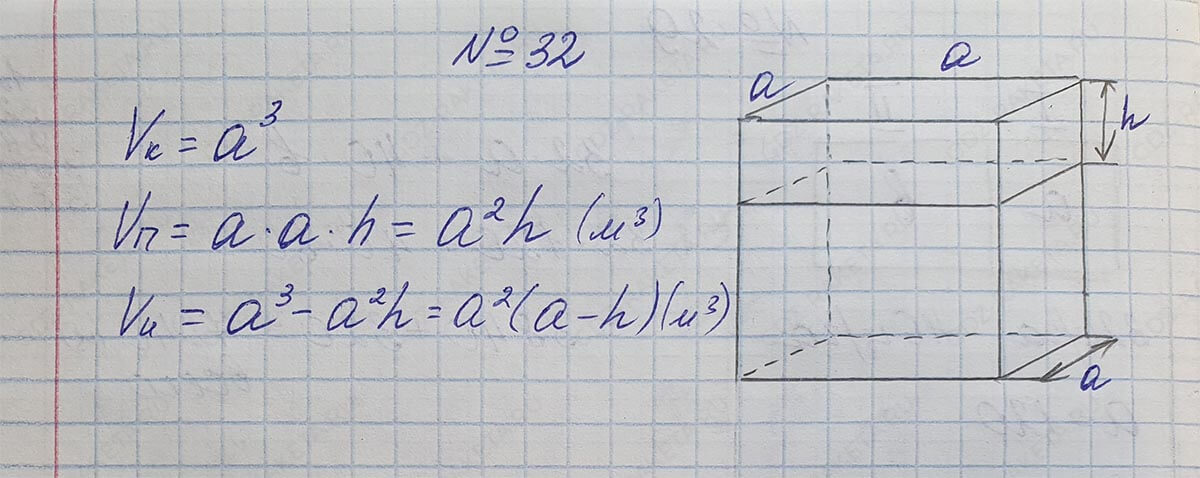 № 32
Vк = a³
Vп = a · a · h = a²h (м³)
Vк = a³ - a²h = a²(a - h) (м³)
a
a
h
a